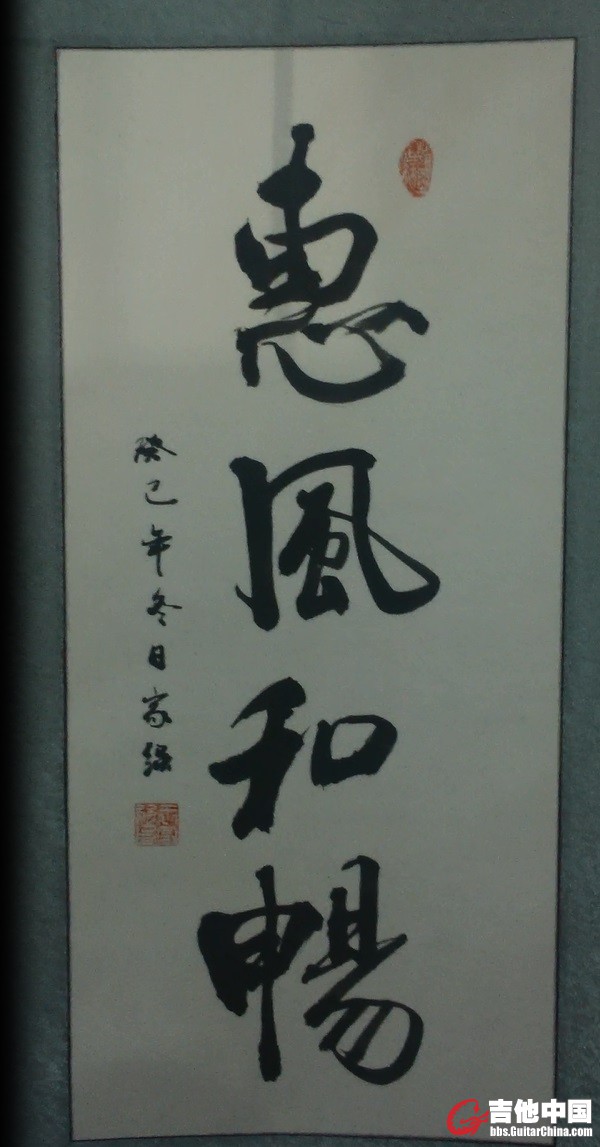 惠風和暢
癸巳年冬日家
吉他中国
bbs.GuitarChina.com